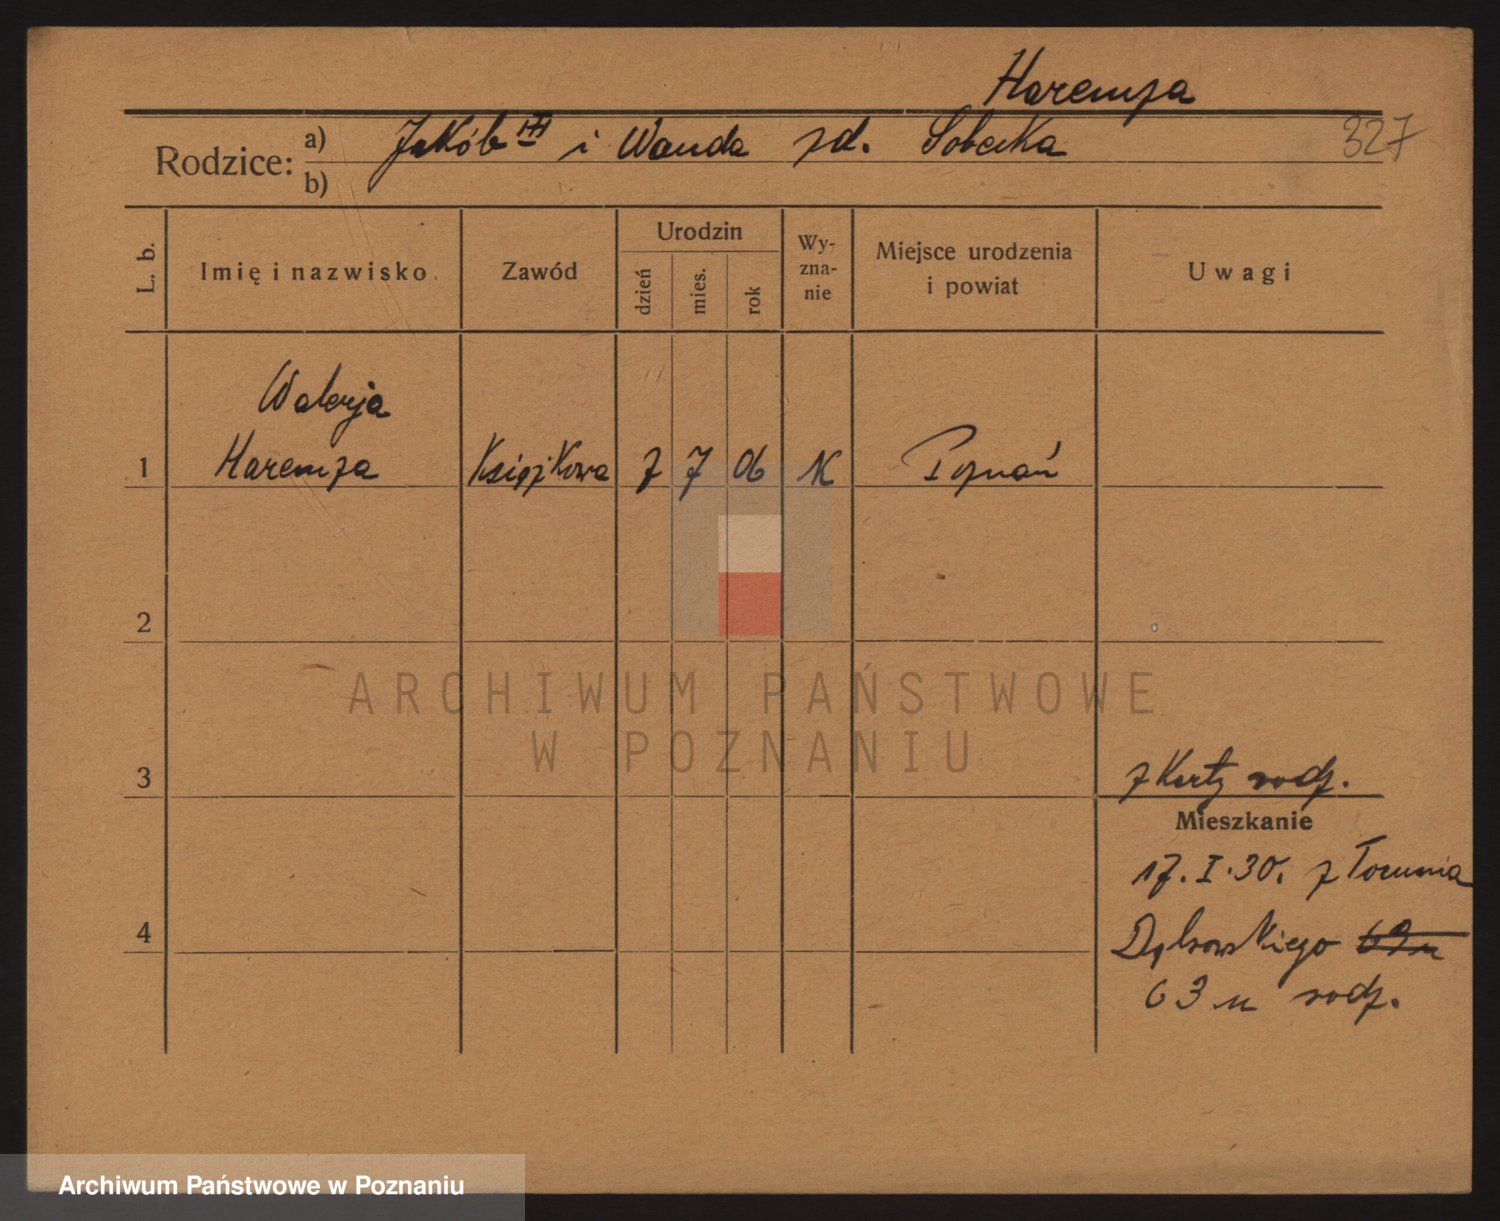 Haremza
Rodzice: a) Jakób III i Wanda zd. Sobecka 327
b)
L. b. Imię i nazwisko Zawód Urodzin dzień mies. rok Wy-zna-nie Miejsce urodzenia i powiat Uwagi
Walerja
1 Haremza Książkowa 7 7 06 K Poznań
2
ARCHIWUM PAŃSTWOWE
W POZNANIU
3 z Karty rodz.
Mieszkanie
17. I. 30. z Torunia
4 Dąbrowskiego 69 u
63 u rodz.
Archiwum Państwowe w Poznaniu